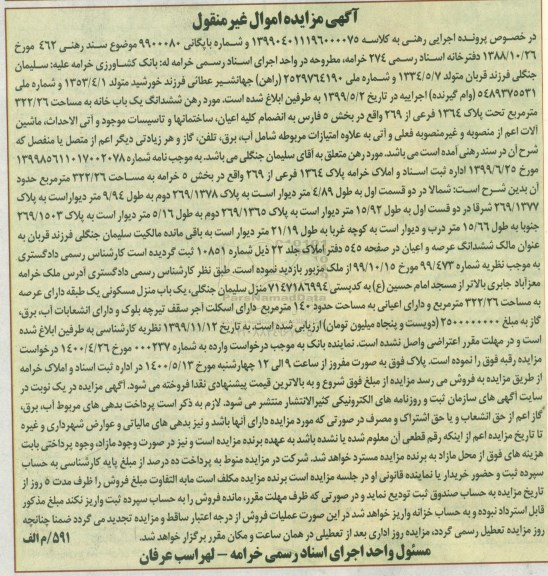 آگهی مزایده اموال غیرمنقول
در خصوص پرونده اجرایی رهنی به کلاسه ۱۳۹۹۰۴۰۱۱۱۹۶۰۰۰۰۷۵ و شماره بایگانی ۹۹۰۰۰۸۰ موضوع سند رهنی ۴۶۲ مورخ
۱۳۸۸/۱۰/۲۶ دفترخانه اسناد رسمی ۲۷۴ خرامه، مطروحه در واحد اجرای اسناد رسمی خرامه له: بانک کشاورزی خرامه علیه: سلیمان
جنگلی فرزند قربان متولد ۱۳۳۴/۵/۷ و شماره ملی ۲۵۲۹۷۶۴۱۹۰ (راهن) جهانشیر عطائی فرزند خورشید متولد ۱۳۵۳/۴/۱ و شماره ملی
۵۴۸۹۳۷۵۵۳۱ (وام گیرنده) اجراییه در تاریخ ۱۳۹۹/۵/۲ به طرفین ابلاغ شده است. مورد رهن ششدانگ یک باب خانه به مساحت ۳۲۲/۲۶
مترمربع تحت پلاک ۱۳۶۴ فرعی از ۲۶۹ واقع در بخش ۵ فارس به انضمام کلیه اعیان، ساختمانها و تاسیسات موجود و آتی الاحداث، ماشین
آلات اعم از منصوبه و غیرمنصوبه فعلی و آتی به علاوه امتیازات مربوطه شامل آب، برق، تلفن، گاز و هر زیادتی دیگر اعم از متصل یا منفصل که
شرح آن در سند رهنی آمده است می باشد. مورد رهن متعلق به آقای سلیمان جنگلی می باشد. به موجب نامه شماره ۱۳۹۹۸۵۶۱۱۰۱۷۰۰۲۰۷۸
مورخ ۱۳۹۹/۶/۲۵ اداره ثبت اسناد و املاک خرامه پلاک ۱۳۶۴ فرعی از ۲۶۹ واقع در بخش ۵ خرامه به مساحت ۳۲۲/۲۶ مترمربع حدود
آن بدین شرح است: شمالا در دو قسمت اول به طول ۴/۸۹ متر دیوار است به پلاک ۲۶۹/۱۳۷۸ دوم به طول ۹/۹۴ متر دیوار است به پلاک
۲۶۹/۱۳۷۷ شرقا در دو قسمت اول به طول ۱۵/۹۲ متر دیوار است به پلاک ۲۶۹/۱۳۶۵ دوم به طول ۵/۱۶ متر دیوار است به پلاک ۲۶۹/۱۵۰۳
جنوبا به طول ۱۵/۶۶ متر درب و دیوار است به کوچه غربا به طول ۲۱/۱۹ متر دیوار است به باقی مانده مالکیت سلیمان جنگلی فرزند قربان به
عنوان مالک ششدانگ عرصه و اعیان در صفحه ۵۴۵ دفتر املاک جلد ۲۲ ذیل شماره ۱۰۸۵۱ ثبت گردیده است کارشناس رسمی دادگستری
به موجب نظریه شماره ۹۹/۴۷۳ مورخ ۹۹/۱۰/۱۵ از ملک مزبور بازدید نموده است. طبق نظر کارشناس رسمی دادگستری آدرس ملک خرامه
معزآباد جابری بالاتر از مسجد امام حسین (ع) به کدپستی ۷۱۴۷۱۸۶۹۹۴ منزل سلیمان جنگلی، یک باب منزل مسکونی یک طبقه دارای عرصه
به مساحت ۳۲۲/۲۶ مترمربع و دارای اعیانی به مساحت حدود ۱۴۰ مترمربع دارای اسکلت آجر سقف تیرچه بلوک و دارای انشعابات آب، برق،
گاز به مبلغ ۲۵۰۰۰۰۰۰۰۰ (دویست و پنجاه میلیون تومان) ارزیابی شده است. به تاریخ ۱۳۹۹/۱۱/۱۲ نظریه کارشناسی به طرفین ابلاغ شده
است و در مهلت مقرر اعتراضی واصل نشده است. نماینده بانک به موجب درخواست وارده به شماره ۰۰۰۲۳۷ مورخ ۱۴۰۰/۴/۲۶ درخواست
مزایده رقبه فوق را نموده است. پلاک فوق به صورت مفروز از ساعت ۹ الی ۱۲ چهارشنبه مورخ ۱۴۰۰/۵/۱۳ در اداره ثبت اسناد و املاک خرامه
از طریق مزایده به فروش می رسد مزایده از مبلغ فوق شروع و به بالاترین قیمت پیشنهادی نقدا فروخته می شود. آگهی مزایده در یک نوبت در
سایت آگهی های سازمان ثبت و روزنامه های الکترونیکی کثیرالانتشار منتشر می شود. لازم به ذکر است پرداخت بدهی های مربوط آب، برق،
گاز اعم از حق انشعاب و یا حق اشتراک و مصرف در صورتی که مورد مزایده دارای آنها باشد و نیز بدهی های مالیاتی و عوارض شهرداری و غیره
تا تاریخ مزایده اعم از اینکه رقم قطعی آن معلوم شده یا نشده باشد به عهده برنده مزایده است و نیز در صورت وجود مازاد، وجوه پرداختی بابت
هزینه های فوق از محل مازاد به برنده مزایده مسترد خواهد شد. شرکت در مزایده منوط به پرداخت ده درصد از مبلغ پایه کارشناسی به حساب
سپرده ثبت و حضور خریدار یا نماینده قانونی او در جلسه مزایده است برنده مزایده مکلف است مابه التفاوت مبلغ فروش را ظرف مدت ۵ روز از
تاریخ مزایده به حساب صندوق ثبت تودیع نماید و در صورتی که ظرف مهلت مقرر، مانده فروش را به حساب سپرده ثبت واریز نکند مبلغ مذکور
قابل استرداد نبوده و به حساب خزانه واریز خواهد شد در این صورت عملیات فروش از درجه اعتبار ساقط و مزایده تجدید می گردد ضمنا چنانچه
روز مزایده تعطیل رسمی گردد، مزایده روز اداری بعد از تعطیلی در همان ساعت و مکان مقرر برگزار خواهد شد. ۵۹۱/م الف
مسئول واحد اجرای اسناد رسمی خرامه – لهراسب عرفان